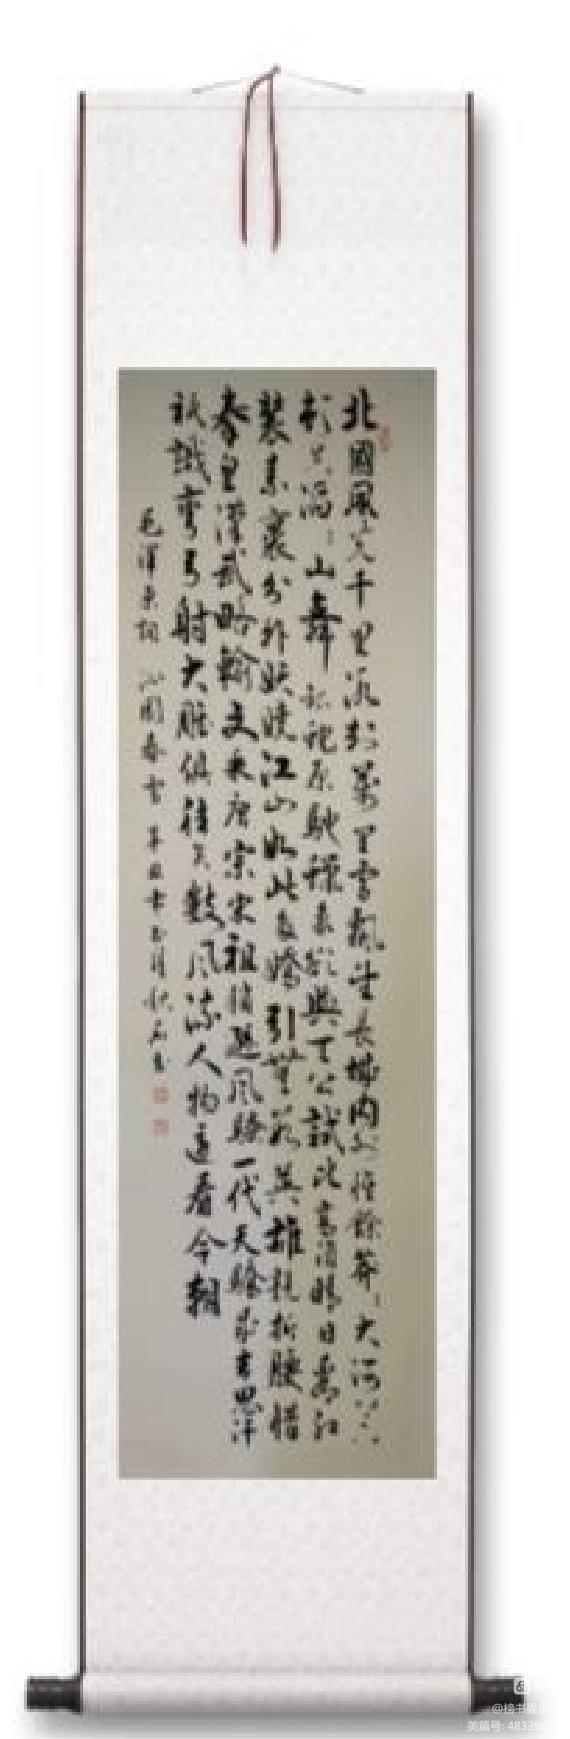 北國風光千里冰封萬里雪飄望長城內外惟餘莽〻大河上下
頓失滔〻山舞銀蛇原馳蠟象欲與天公試比高須晴日看紅
裝素裹分外妖嬈江山如此多嬌引無數英雄競折腰惜
秦皇漢武略輸文采唐宗宋祖稍遜風騷一代天驕成吉思汗
祇識彎弓射大雕俱往矣數風流人物還看今朝
毛澤東詞 沁園春雪
@榜書
美篇号: 48339